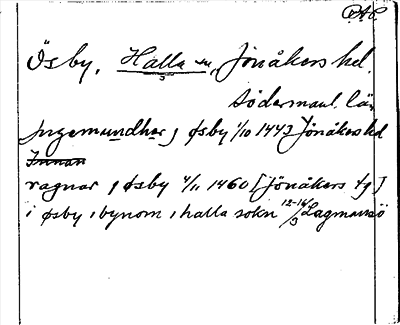 Ösby, Halla sn, Jönåkers hd.
Södermanl. län
Jngemundhar j øsby 1/10 1443 Jönåkers hd
ragnar j øsby 4/11 1460 [Jönåkers tg]
i øsby i bynom i halla sokn 12-14/3 Lagmansö